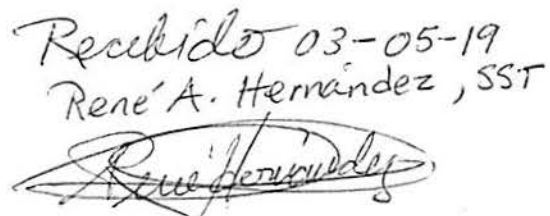 Recibido 03-05-19
René A. Hernández, SST
René Hernández